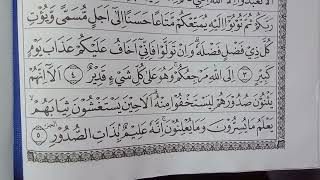 رَبَّكُمْ ثُمَّ تُوبُوا إِلَيْهِ يُمَتِّعْكُمْ مَتَاعًا حَسَنًا إِلَى أَجَلٍ مُسَمًّى وَيُؤْتِ
كُلَّ ذِي فَضْلٍ فَضْلَهُ وَإِنْ تَوَلَّوْا فَإِنِّي أَخَافُ عَلَيْكُمْ عَذَابَ يَوْمٍ
كَبِيرٍ ٣ إِلَى اللَّهِ مَرْجِعُكُمْ وَهُوَ عَلَى كُلِّ شَيْءٍ قَدِيرٌ ٤ أَلَا إِنَّهُمْ
يَثْنُونَ صُدُورَهُمْ لِيَسْتَخْفُوا مِنْهُ أَلَا حِينَ يَسْتَغْشُونَ ثِيَابَهُمْ
يَعْلَمُ مَا يُسِرُّونَ وَمَا يُعْلِنُونَ إِنَّهُ عَلِيمٌ بِذَاتِ الصُّدُورِ ٥